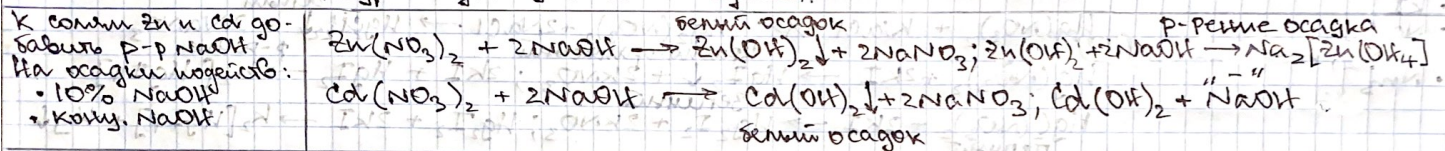 К солям Zn и Cd до-
бавить р-р NaOH.
На осадки подейств:
• 10% NaOH
• конц. NaOH
белый осадок р-рение осадка
Zn(NO₃)₂ + 2NaOH → Zn(OH)₂↓ + 2NaNO₃; Zn(OH)₂ + 2NaOH → Na₂[Zn(OH₄]
Cd(NO₃)₂ + 2NaOH → Cd(OH)₂↓ + 2NaNO₃; Cd(OH)₂ + NaOH "–"
белый осадок